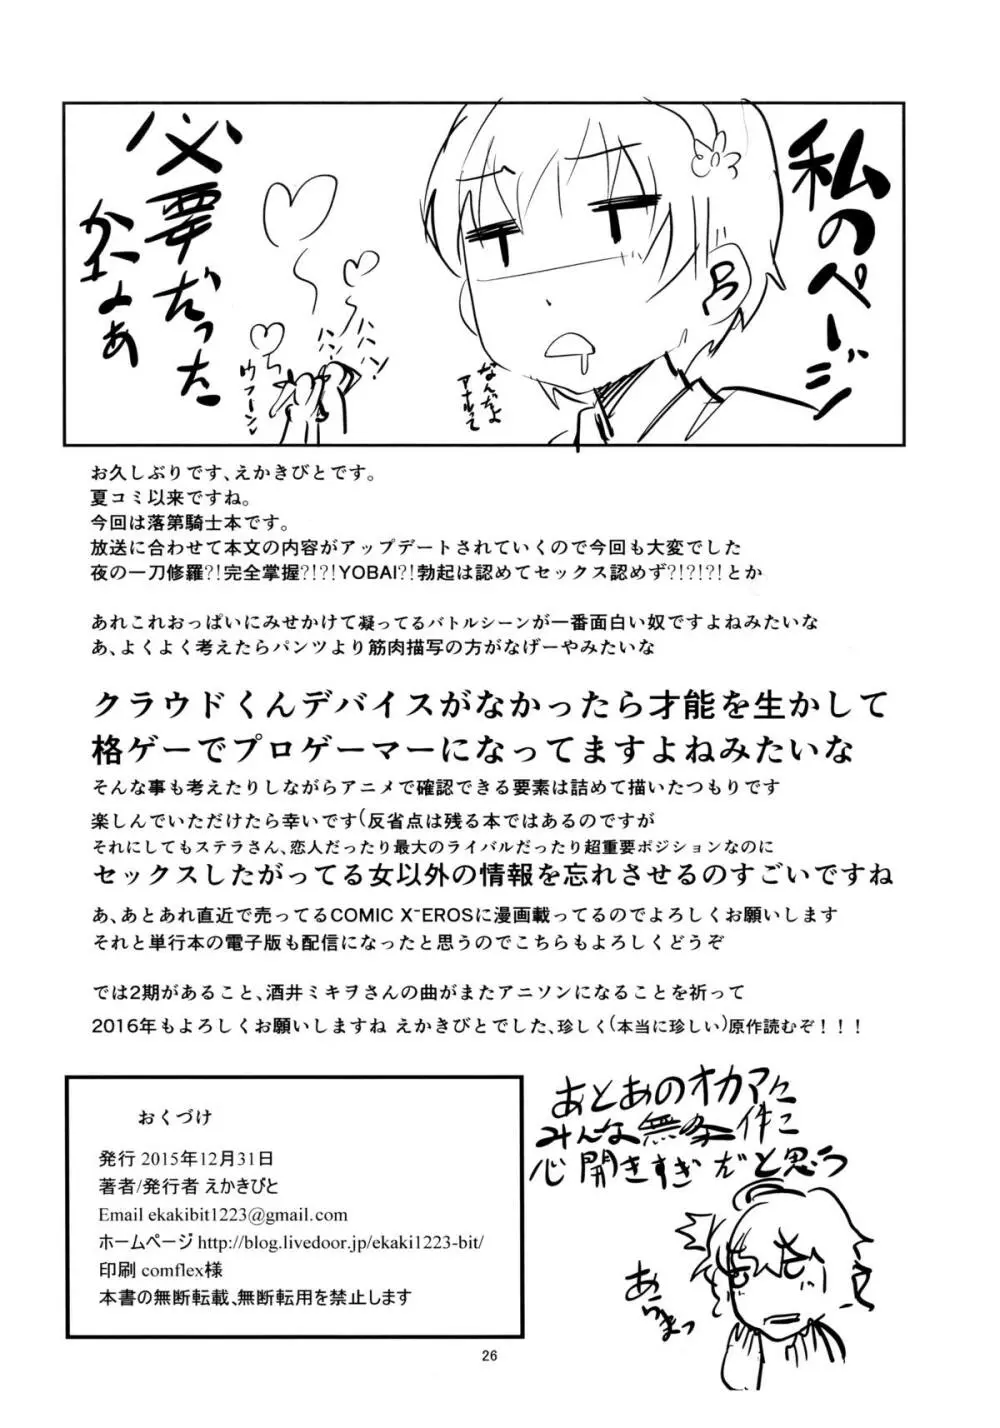 私のページ
必要だった
かなぁ
なんだよ
アナルって
ウフーン
お久しぶりです、えかきびとです。
夏コミ以来ですね。
今回は落第騎士本です。
放送に合わせて本文の内容がアップデートされていくので今回も大変でした
夜の一刀修羅?!完全掌握?!?!YOBAI?!勃起は認めてセックス認めず?!?!?!とか
あれこれおっぱいにみせかけて凝ってるバトルシーンが一番面白い奴ですよねみたいな
あ、よくよく考えたらパンツより筋肉描写の方がなげーやみたいな
クラウドくんデバイスがなかったら才能を生かして
格ゲーでプロゲーマーになってますよねみたいな
そんな事も考えたりしながらアニメで確認できる要素は詰めて描いたつもりです
楽しんでいただけたら幸いです(反省点は残る本ではあるのですが
それにしてもステラさん、恋人だったり最大のライバルだったり超重要ポジションなのに
セックスしたがってる女以外の情報を忘れさせるのすごいですね
あ、あとあれ直近で売ってるCOMIC X-EROSに漫画載ってるのでよろしくお願いします
それと単行本の電子版も配信になったと思うのでこちらもよろしくどうぞ
では2期があること、酒井ミキヲさんの曲がまたアニソンになることを祈って
2016年もよろしくお願いしますね えかきびとでした、珍しく(本当に珍しい)原作読むぞ！！！
おくづけ
発行 2015年12月31日
著者/発行者 えかきびと
Email ekakibit1223@gmail.com
ホームページ http://blog.livedoor.jp/ekaki1223-bit/
印刷 comflex様
本書の無断転載、無断転用を禁止します
あとあのオカマに
みんな無条件に
心開きすぎだと思う
あらまっ
26